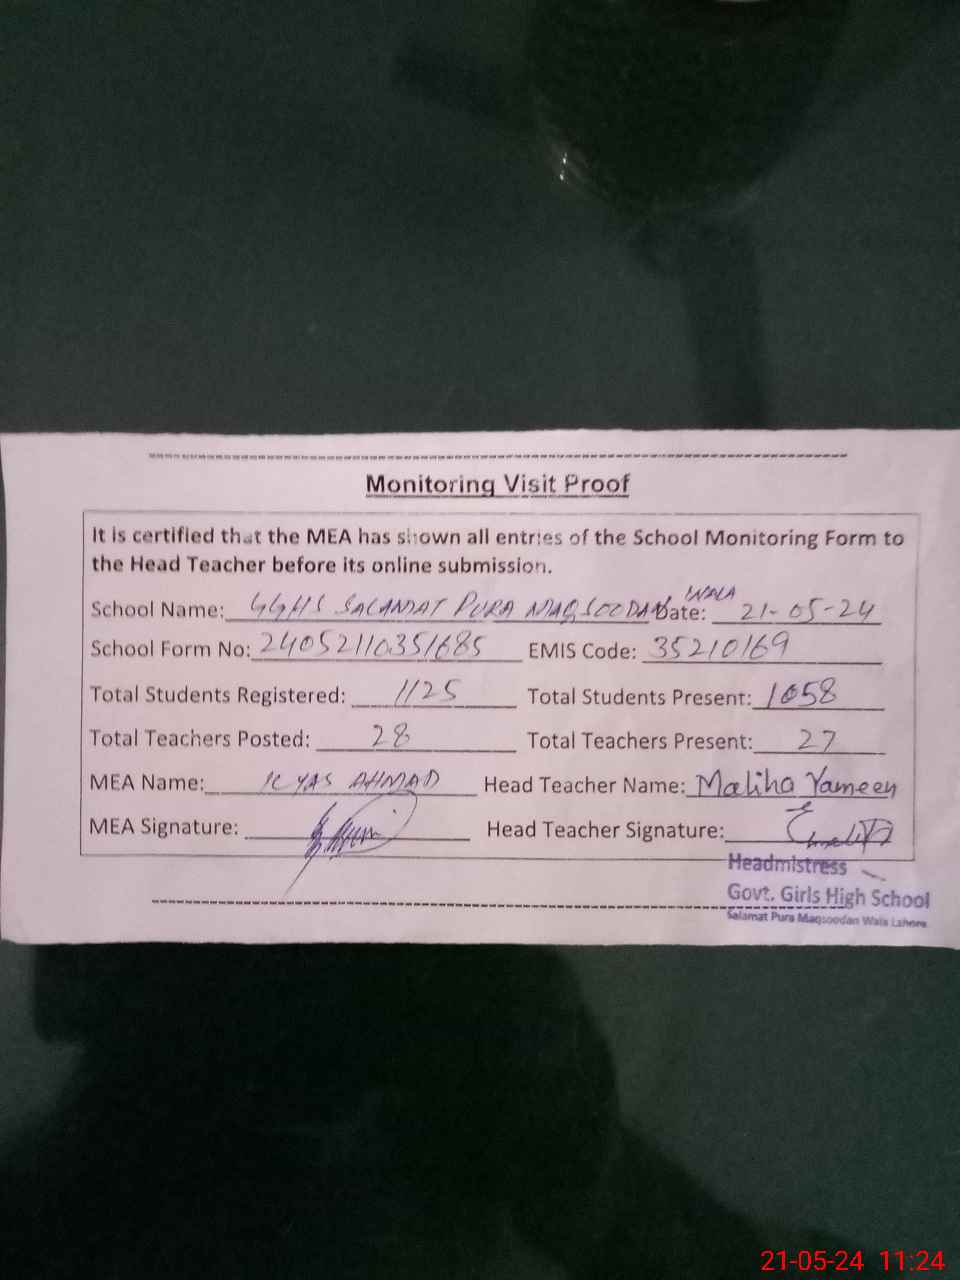 Monitoring Visit Proof
It is certified that the MEA has shown all entries of the School Monitoring Form to
the Head Teacher before its online submission.
School Name: GGHS SALAMAT PURA MAQSOODAN WALA Date: 21-05-24
School Form No: 24052110351685 EMIS Code: 35210169
Total Students Registered: 1125 Total Students Present: 1058
Total Teachers Posted: 28 Total Teachers Present: 27
MEA Name: ILYAS AHMAD Head Teacher Name: Maliha Yameen
MEA Signature: Head Teacher Signature:
Headmistress
Govt. Girls High School
Salamat Pura Maqsoodan Wala Lahore
21-05-24 11:24